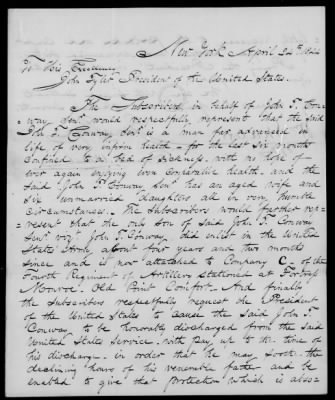 New York April 24th 184
To His Excellency
John Tyler President of the United States.
The Subscribers in behalf of John T. Con-
way Senr would respectfully represent that the said
John T. Conway Senr is a man far advanced in
life of very infirm health - for the last six months
confined to a bed of sickness, with no hope of
ever again enjoying even comparative health, and the
said John T. Conway Senr has an aged wife and
six unmarried daughters all in very humble
circumstances. The Subscribers would further rep-
resent that the only Son of said John T. Conway
Senr viz John T. Conway did enlist in the United
States Army about four years and two months
since and is now attached to Company C. of the
Fourth Regiment of Artillery stationed at Fortress
Monroe. Old Point Comfort. And finally
the Subscribers respectfully request the President
of the United States to cause the said John T.
Conway to be honorably discharged from the said
United States Service with pay up to the time of
his discharge in order that he may sooth the
declining hours of his venerable father and be
enabled to give that protection which is abso-